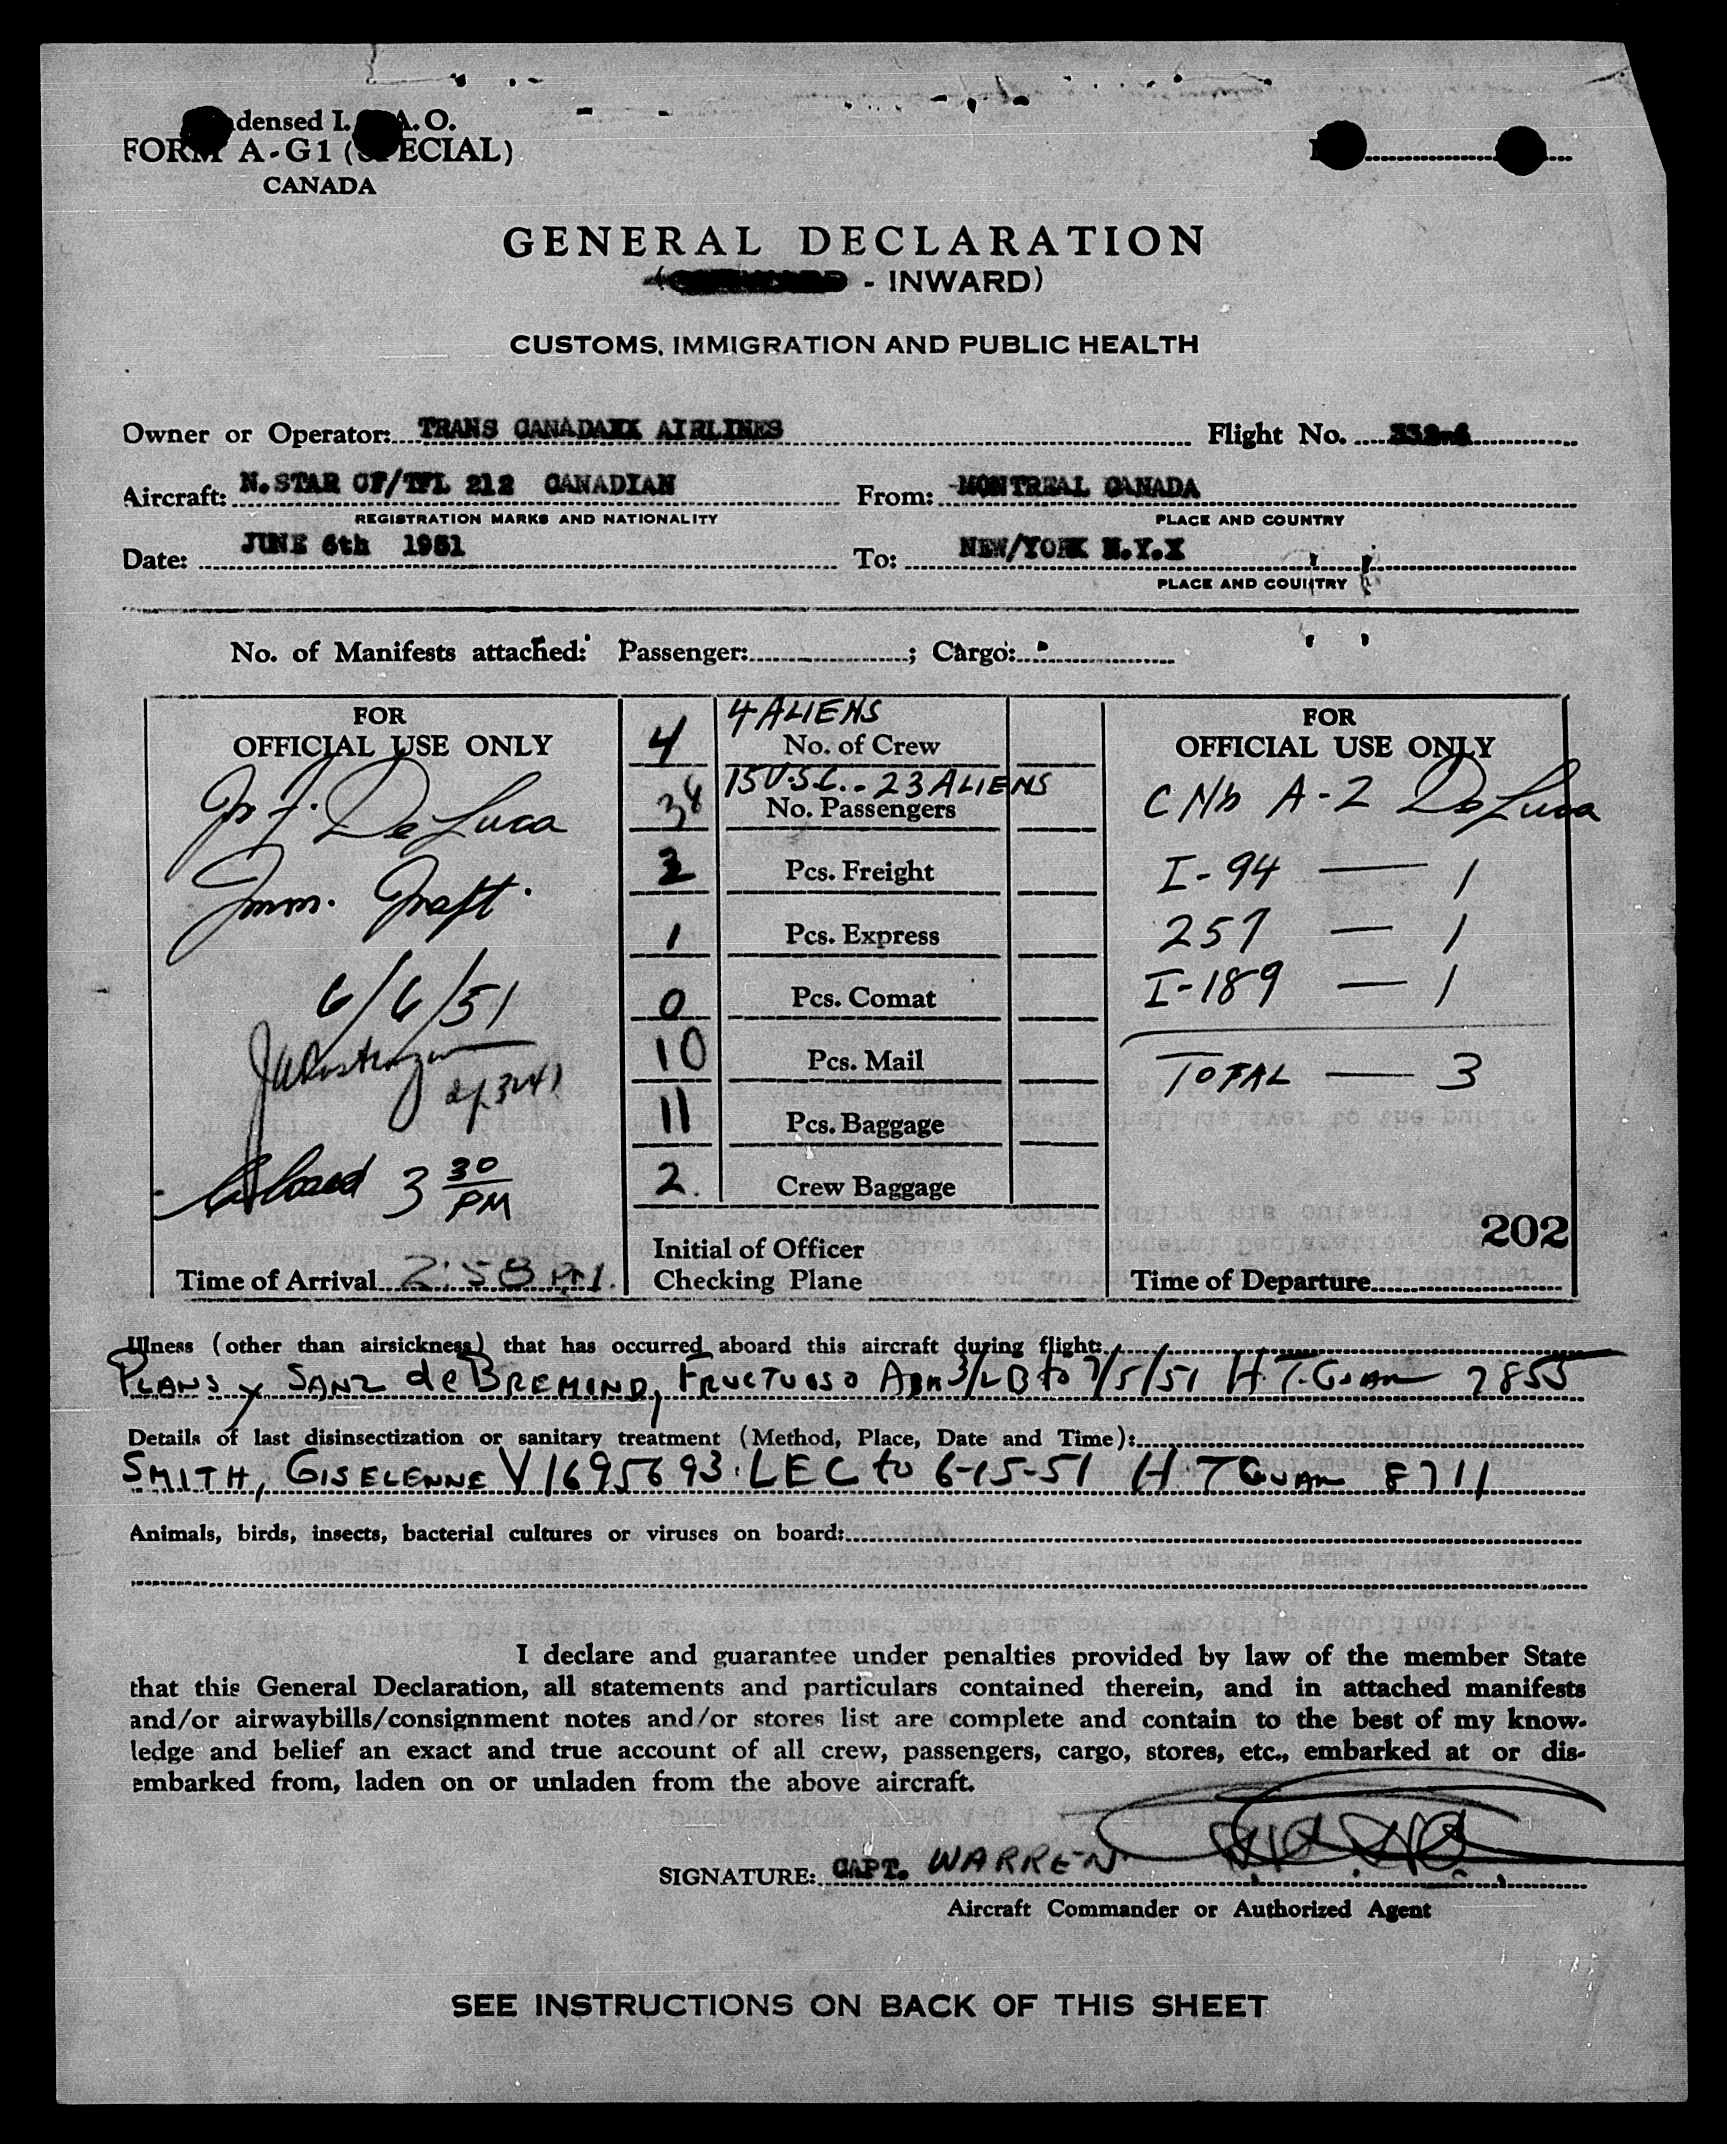 densed I. A.O.
FORM A-G1 (SPECIAL)
CANADA
GENERAL DECLARATION
( - INWARD)
CUSTOMS, IMMIGRATION AND PUBLIC HEALTH
Owner or Operator: TRANS CANADAXX AIRLINES Flight No.
Aircraft: N.STAR CF/TFL 212 CANADIAN From: MONTREAL CANADA
REGISTRATION MARKS AND NATIONALITY PLACE AND COUNTRY
Date: JUNE 6th 1951 To: NEW/YORK N.Y.X
PLACE AND COUNTRY
No. of Manifests attached: Passenger: ; Cargo:
FOR
OFFICIAL USE ONLY
De Luca
Imm.
6/6/51
Aboard 3 30 PM
Time of Arrival 2:58 P.M.
4 4 ALIENS
No. of Crew
15 U.S.C. - 23 ALIENS
38 No. Passengers
Pcs. Freight
1 Pcs. Express
0 Pcs. Comat
10 Pcs. Mail
11 Pcs. Baggage
2. Crew Baggage
Initial of Officer
Checking Plane
FOR
OFFICIAL USE ONLY
A-2 DeLuca
I-94 — 1
257 — 1
I-189 — 1
TOTAL — 3
202
Time of Departure
Illness (other than airsickness) that has occurred aboard this aircraft during flight:
PLANS y SANZ de BREMOND, FRUCTUOSO Adm 3/2 B to 7/5/51 H.T. Guan 7855
Details of last disinsectization or sanitary treatment (Method, Place, Date and Time):
SMITH, GISELENNE V1695693 LEC to 6-15-51 H.T Guan 8711
Animals, birds, insects, bacterial cultures or viruses on board:
I declare and guarantee under penalties provided by law of the member State
that this General Declaration, all statements and particulars contained therein, and in attached manifests
and/or airwaybills/consignment notes and/or stores list are complete and contain to the best of my know-
ledge and belief an exact and true account of all crew, passengers, cargo, stores, etc., embarked at or dis-
embarked from, laden on or unladen from the above aircraft.
SIGNATURE: CAPT. WARREN
Aircraft Commander or Authorized Agent
SEE INSTRUCTIONS ON BACK OF THIS SHEET